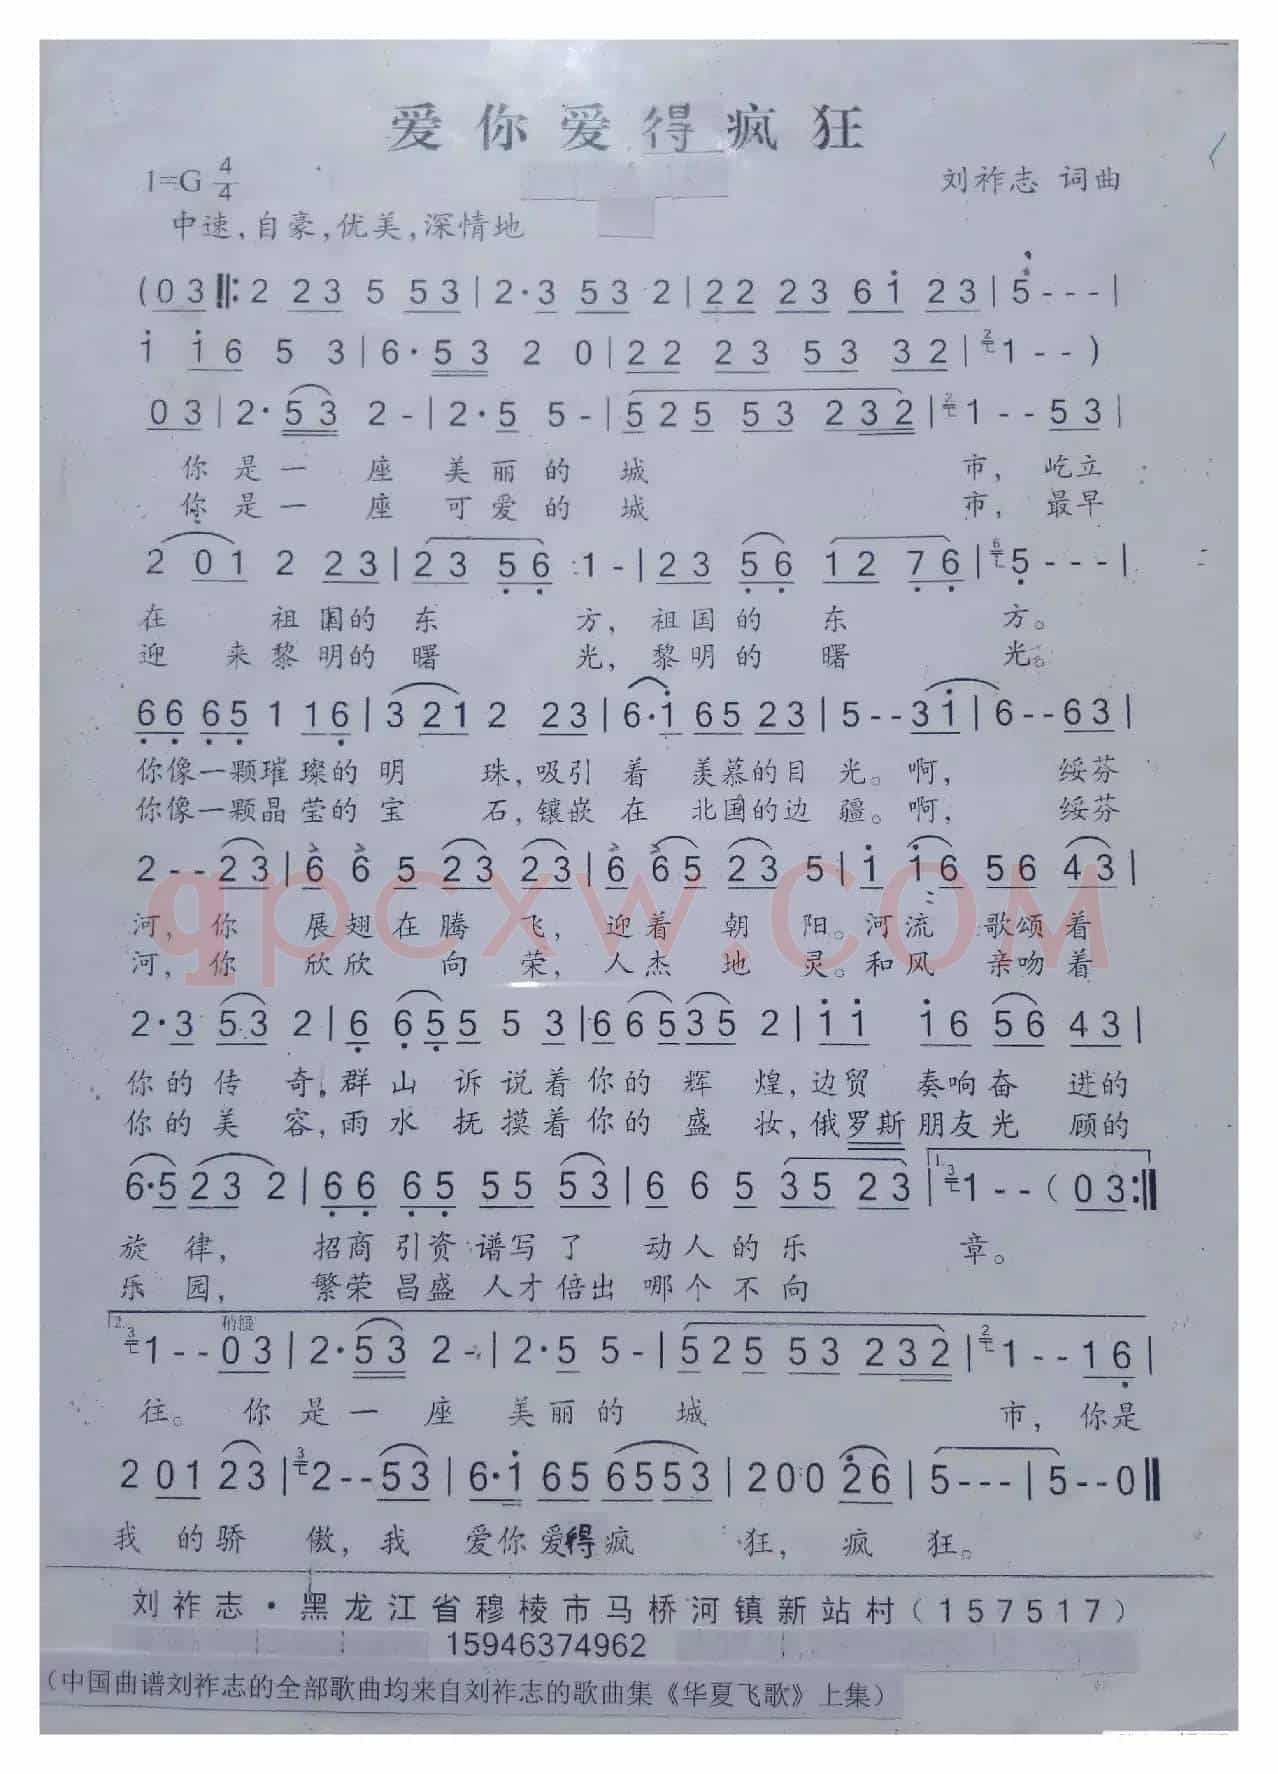 爱你爱得疯狂
1=G 4/4
刘祚志 词曲
中速,自豪,优美,深情地
(0 3 ‖: 2 2 3 5 5 3 | 2 · 3 5 3 2 | 2 2 2 3 6 i 2 3 | 5 - - - |
i i 6 5 3 | 6 · 5 3 2 0 | 2 2 2 3 5 3 3 2 | 2 1 - - )
0 3 | 2 · 5 3 2 - | 2 · 5 5 - | 5 2 5 5 3 2 3 2 | 2 1 - - 5 3 |
你是一座美丽的城市,屹立
你是一座可爱的城市,最早
2 0 1 2 2 3 | 2 3 5 6 1 - | 2 3 5 6 1 2 7 6 | 6 5 - - - |
在祖国的东方,祖国的东方。
迎来黎明的曙光,黎明的曙光。
6 6 6 5 1 1 6 | 3 2 1 2 2 3 | 6 · i 6 5 2 3 | 5 - - 3 i | 6 - - 6 3 |
你像一颗璀璨的明珠,吸引着羡慕的目光。啊,绥芬
你像一颗晶莹的宝石,镶嵌在北国的边疆。啊,绥芬
2 - - 2 3 | 6 6 5 2 3 2 3 | 6 6 5 2 3 5 | i i 6 5 6 4 3 |
河,你展翅在腾飞,迎着朝阳。河流歌颂着
河,你欣欣向荣,人杰地灵。和风亲吻着
qpcxw.COM
2 · 3 5 3 2 | 6 6 5 5 5 3 | 6 6 5 3 5 2 | i i i 6 5 6 4 3 |
你的传奇。群山诉说着你的辉煌,边贸奏响奋进的
你的美容,雨水抚摸着你的盛妆,俄罗斯朋友光顾的
6 · 5 2 3 2 | 6 6 6 5 5 5 5 3 | 6 6 5 3 5 2 3 | 1. 3 1 - - ( 0 3 :‖
旋律,招商引资谱写了动人的乐章。
乐园,繁荣昌盛人才倍出哪个不向
2. 稍慢
3 1 - - 0 3 | 2 · 5 3 2 - | 2 · 5 5 - | 5 2 5 5 3 2 3 2 | 2 1 - - 1 6 |
往。你是一座美丽的城市,你是
2 0 1 2 3 | 3 2 - - 5 3 | 6 · i 6 5 6 5 5 3 | 2 0 0 2 6 | 5 - - - | 5 - - 0 ‖
我的骄傲,我爱你爱得疯狂,疯狂。
刘祚志·黑龙江省穆棱市马桥河镇新站村(157517)
15946374962
(中国曲谱刘祚志的全部歌曲均来自刘祚志的歌曲集《华夏飞歌》上集)